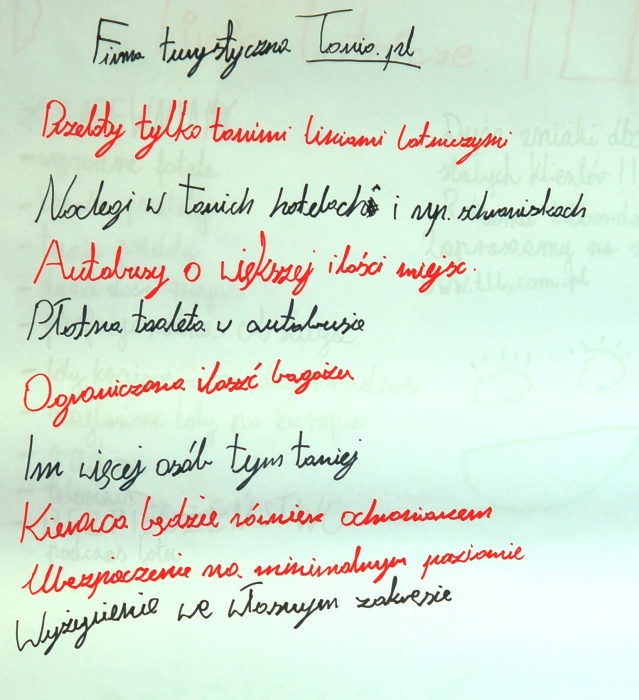 Firma turystyczna Tanio.pl
Przeloty tylko tanimi liniami lotniczymi
Noclegi w tanich hotelach i np. schroniskach
Autobusy o większej ilości miejsc.
Płatna toaleta w autobusie
Ograniczona ilość bagażu
Im więcej osób tym taniej
Kierowca będzie również ochroniarzem
Ubezpieczenie na minimalnym poziomie
Wyżywienie we własnym zakresie